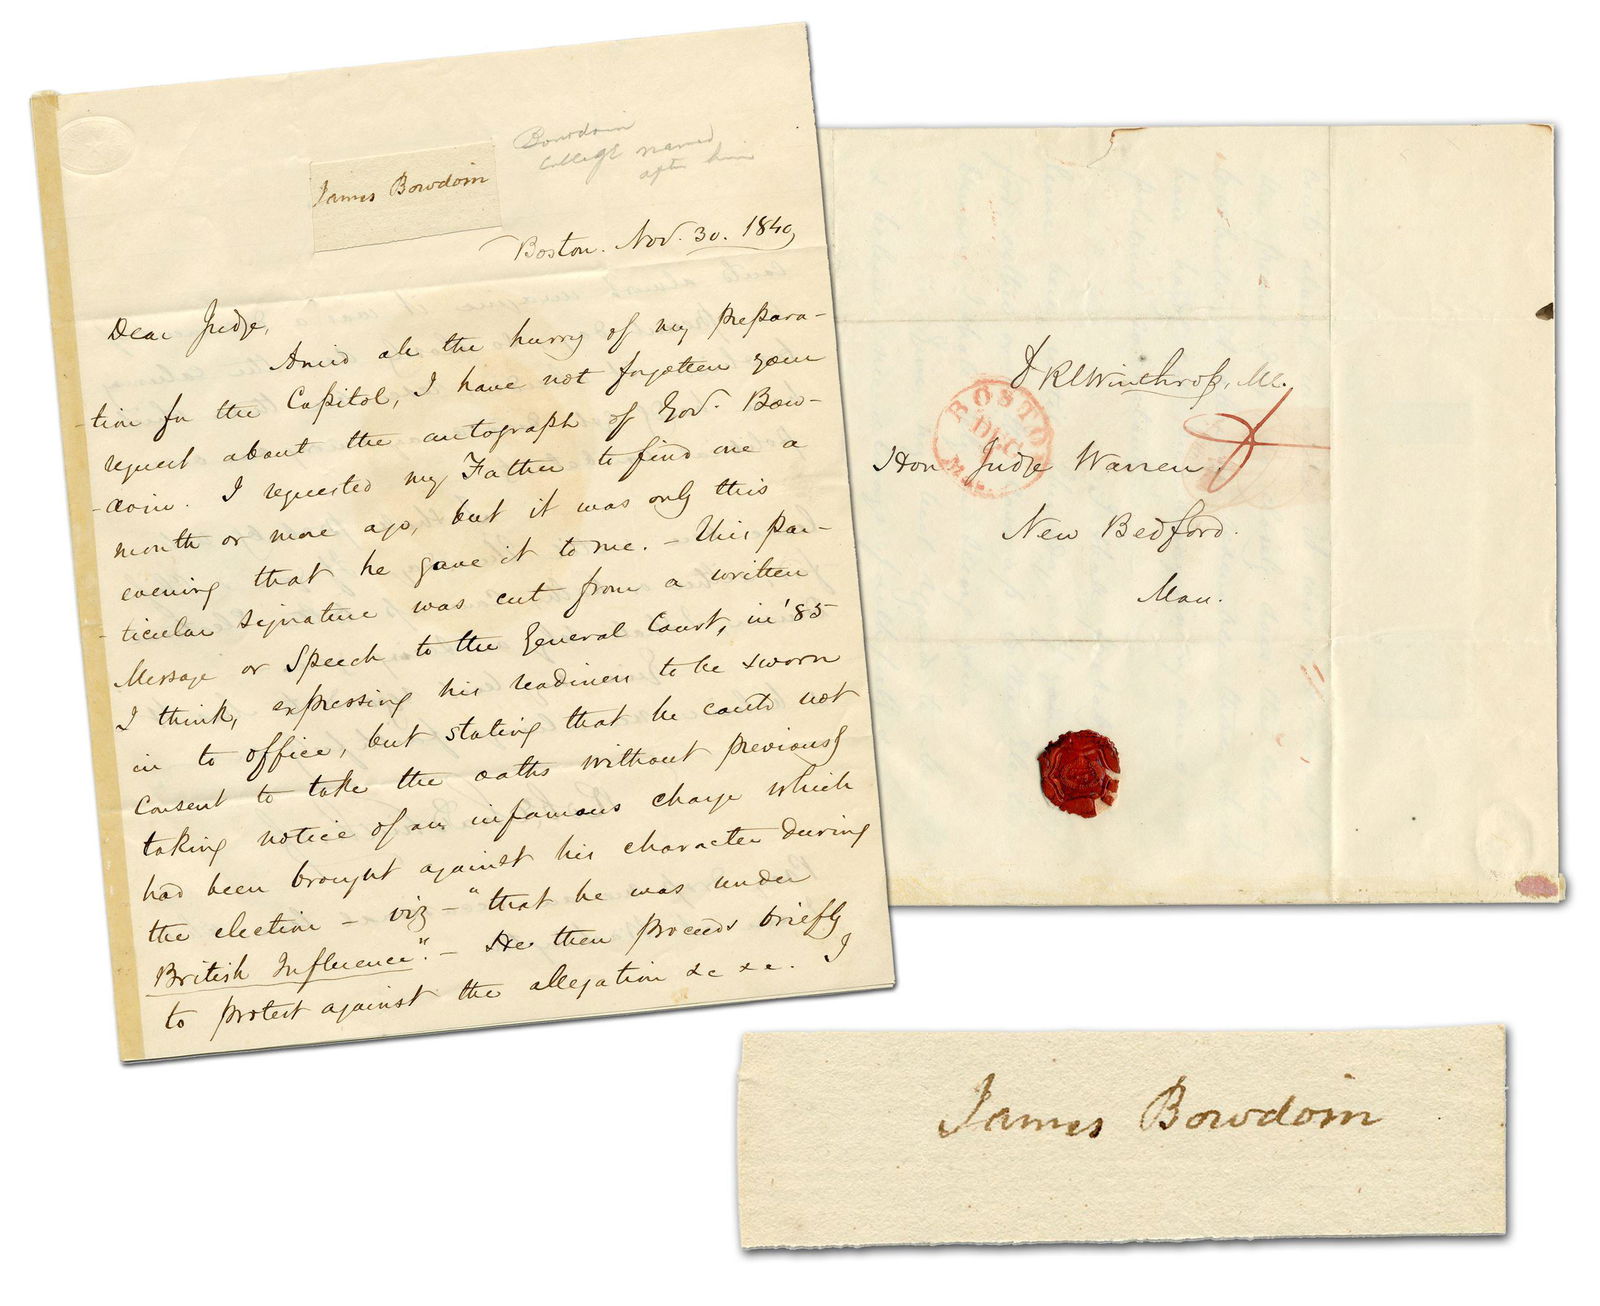 James Bowdoin
Bowdoin
College named
after him
Boston. Nov. 30. 1840,
Dear Judge,
Amid all the hurry of my prepara-
tion for the Capitol, I have not forgotten your
request about the autograph of Gov. Bow-
-doin. I requested my Father to find me a
month or more ago, but it was only this
evening that he gave it to me. - This par-
-ticular signature was cut from a written
Message or Speech to the General Court, in '85
I think, expressing his readiness to be sworn
in to office, but stating that he could not
consent to take the oaths without previously
taking notice of an infamous charge which
had been brought against his character during
the election - viz - "that he was under
British Influence". - He then proceeds briefly
to protest against the allegation &c &c. I
RCWinthrop, M.C.
BOSTON
DEC
MAS.
Hon Judge Warren
New Bedford.
Mass.
James Bowdoin